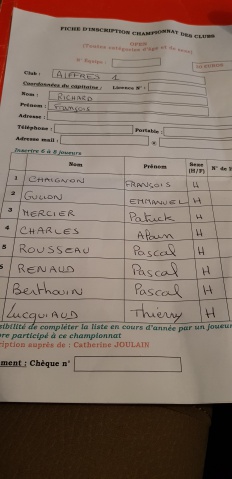 FICHE D'INSCRIPTION CHAMPIONNAT DES CLUBS
OPEN
(Toutes catégories d'âge et de sexe)
N° Equipe :
Club : AIFFRES 1
Coordonnées du capitaine : Licence N° :
Nom : RICHARD
Prénom : François
Adresse :
Téléphone : Portable :
Adresse mail : @
Inscrire 6 à 8 joueurs
Nom Prénom Sexe (H/F) N° de
1 CHAIGNON FRANÇOIS H
2 GUILLON EMMANUEL H
3 MERCIER Patrick H
4 CHARLES Alain H
5 ROUSSEAU Pascal H
6 RENAUD Pascal H
Berthouin Pascal H
Lucquiaud Thierry H
ibilité de compléter la liste en cours d'année par un joueur
re participé à ce championnat
ription auprès de : Catherine JOULAIN
ment : Chèque n°